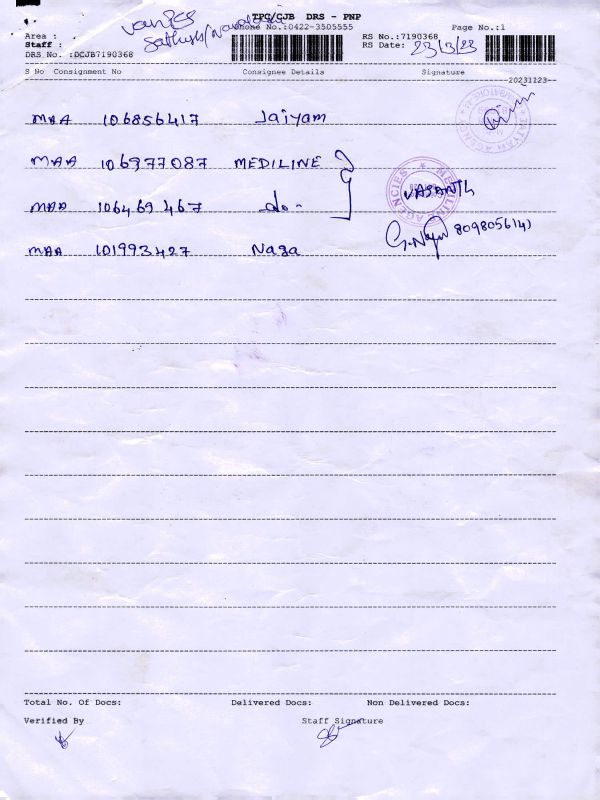 TPC/CJB DRS - PNP
Phone No.:0422-3505555
Page No.:1
Area :
Staff :
DRS No. :DCJB7190368
RS No.:7190368
RS Date: 23/3/23
S No Consignment No Consignee Details Signature
20231123
MAA 106856417 Jaiyam
MAA 106977087 MEDILINE
MAA 106469467 do-
VASANTH
MEDILINE AGENCIES
MAA 101993427 Naga
Total No. Of Docs: Delivered Docs: Non Delivered Docs:
Verified By Staff Signature